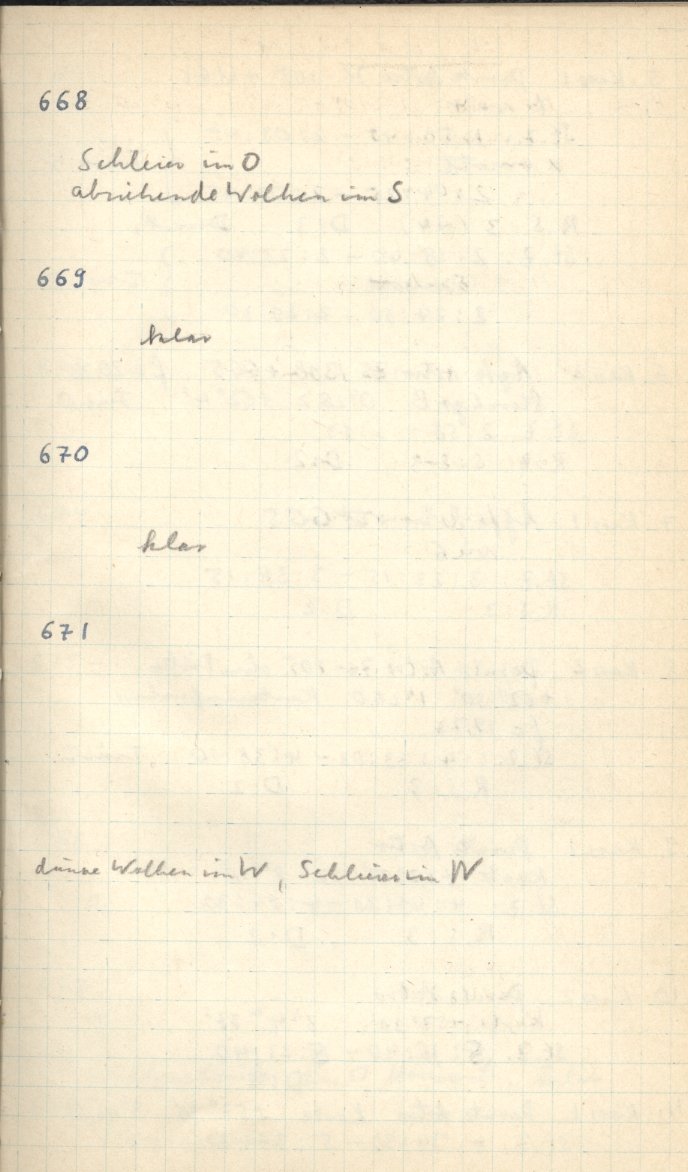 668
Schleier im O
abziehende Wolken im S
669
klar
670
klar
671
dünne Wolken im W, Schleier im N